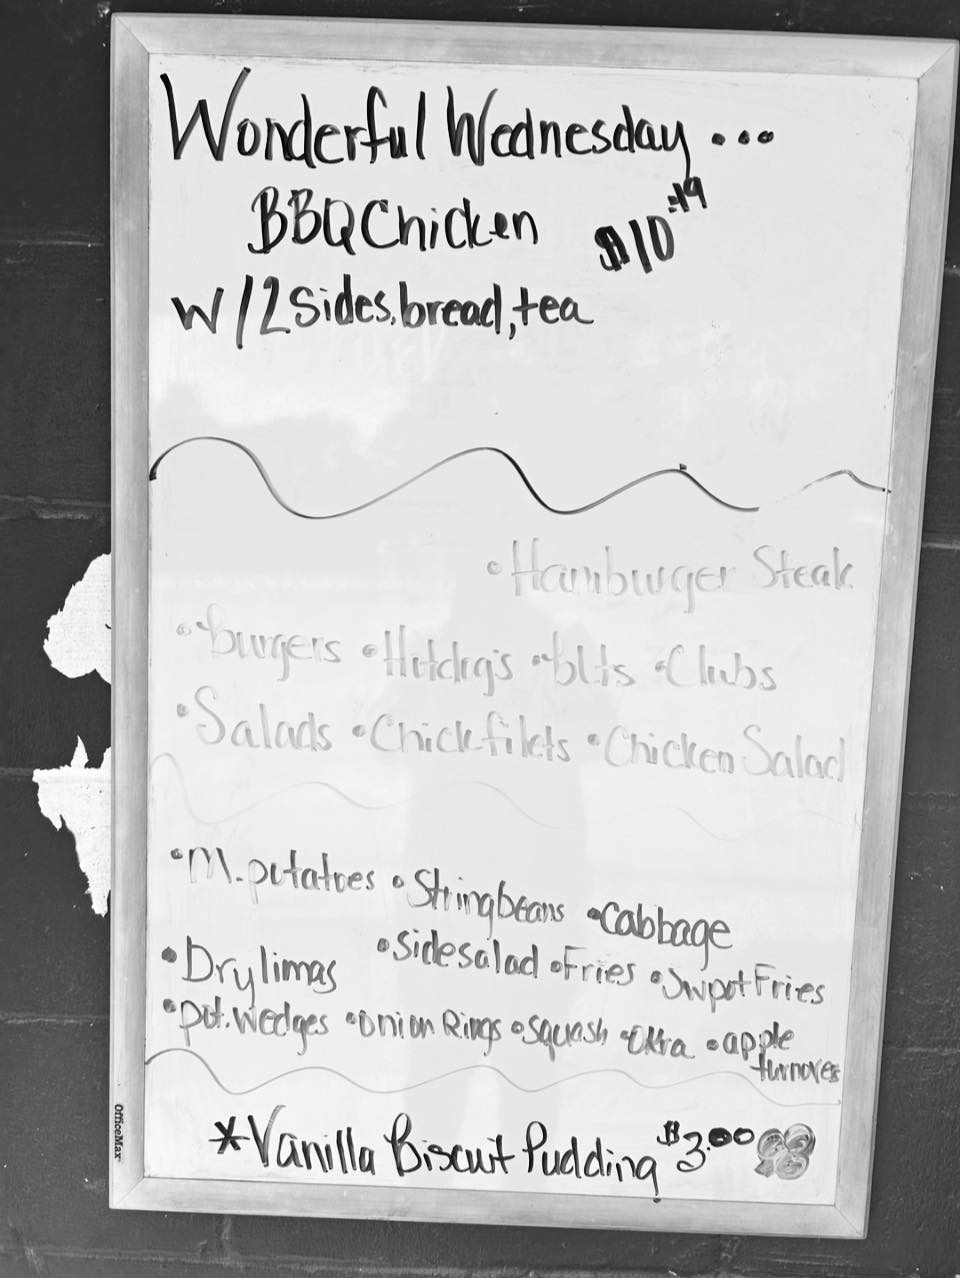 Wonderful Wednesday...
BBQ Chicken $10.49
w/2 sides, bread, tea
• Hamburger Steak
• Burgers • Hotdog's • blts • Clubs
• Salads • Chick filets • Chicken Salad
• M. potatoes • Stringbeans • Cabbage
• Dry limas • Sidesalad • Fries • Swpot Fries
• pot. wedges • Onion Rings • Squash • Okra • apple
turnovers
*Vanilla Biscuit Pudding $3.00
OfficeMax